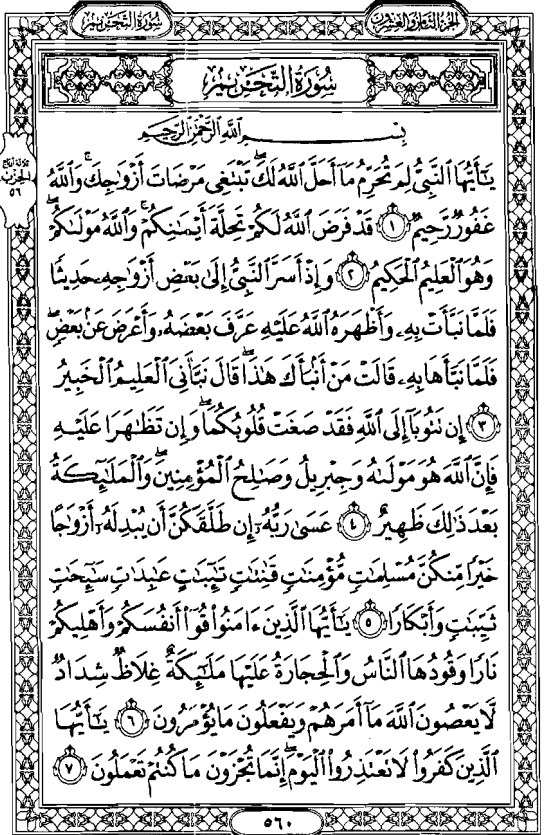 سُورَةُ التَّحْرِيمِ
الجزء الثامن والعشرون
سُورَةُ التَّحْرِيمِ
بِسْمِ ٱللَّهِ ٱلرَّحْمَٰنِ ٱلرَّحِيمِ
يَٰٓأَيُّهَا ٱلنَّبِىُّ لِمَ تُحَرِّمُ مَآ أَحَلَّ ٱللَّهُ لَكَ ۖ تَبْتَغِى مَرْضَاتَ أَزْوَٰجِكَ ۚ وَٱللَّهُ
غَفُورٌ رَّحِيمٌ ١ قَدْ فَرَضَ ٱللَّهُ لَكُمْ تَحِلَّةَ أَيْمَٰنِكُمْ ۚ وَٱللَّهُ مَوْلَىٰكُمْ ۖ
وَهُوَ ٱلْعَلِيمُ ٱلْحَكِيمُ ٢ وَإِذْ أَسَرَّ ٱلنَّبِىُّ إِلَىٰ بَعْضِ أَزْوَٰجِهِۦ حَدِيثًا
فَلَمَّا نَبَّأَتْ بِهِۦ وَأَظْهَرَهُ ٱللَّهُ عَلَيْهِ عَرَّفَ بَعْضَهُۥ وَأَعْرَضَ عَنۢ بَعْضٍ ۖ
فَلَمَّا نَبَّأَهَا بِهِۦ قَالَتْ مَنْ أَنۢبَأَكَ هَٰذَا ۖ قَالَ نَبَّأَنِىَ ٱلْعَلِيمُ ٱلْخَبِيرُ
٣ إِن تَتُوبَآ إِلَى ٱللَّهِ فَقَدْ صَغَتْ قُلُوبُكُمَا ۖ وَإِن تَظَٰهَرَا عَلَيْهِ
فَإِنَّ ٱللَّهَ هُوَ مَوْلَىٰهُ وَجِبْرِيلُ وَصَٰلِحُ ٱلْمُؤْمِنِينَ ۖ وَٱلْمَلَٰٓئِكَةُ
بَعْدَ ذَٰلِكَ ظَهِيرٌ ٤ عَسَىٰ رَبُّهُۥٓ إِن طَلَّقَكُنَّ أَن يُبْدِلَهُۥٓ أَزْوَٰجًا
خَيْرًا مِّنكُنَّ مُسْلِمَٰتٍ مُّؤْمِنَٰتٍ قَٰنِتَٰتٍ تَٰٓئِبَٰتٍ عَٰبِدَٰتٍ سَٰٓئِحَٰتٍ
ثَيِّبَٰتٍ وَأَبْكَارًا ٥ يَٰٓأَيُّهَا ٱلَّذِينَ ءَامَنُوا۟ قُوٓا۟ أَنفُسَكُمْ وَأَهْلِيكُمْ
نَارًا وَقُودُهَا ٱلنَّاسُ وَٱلْحِجَارَةُ عَلَيْهَا مَلَٰٓئِكَةٌ غِلَاظٌ شِدَادٌ
لَّا يَعْصُونَ ٱللَّهَ مَآ أَمَرَهُمْ وَيَفْعَلُونَ مَا يُؤْمَرُونَ ٦ يَٰٓأَيُّهَا
ٱلَّذِينَ كَفَرُوا۟ لَا تَعْتَذِرُوا۟ ٱلْيَوْمَ ۖ إِنَّمَا تُجْزَوْنَ مَا كُنتُمْ تَعْمَلُونَ ٧
ثلاثة أرباع
الحزب
٥٦
٥٦٠